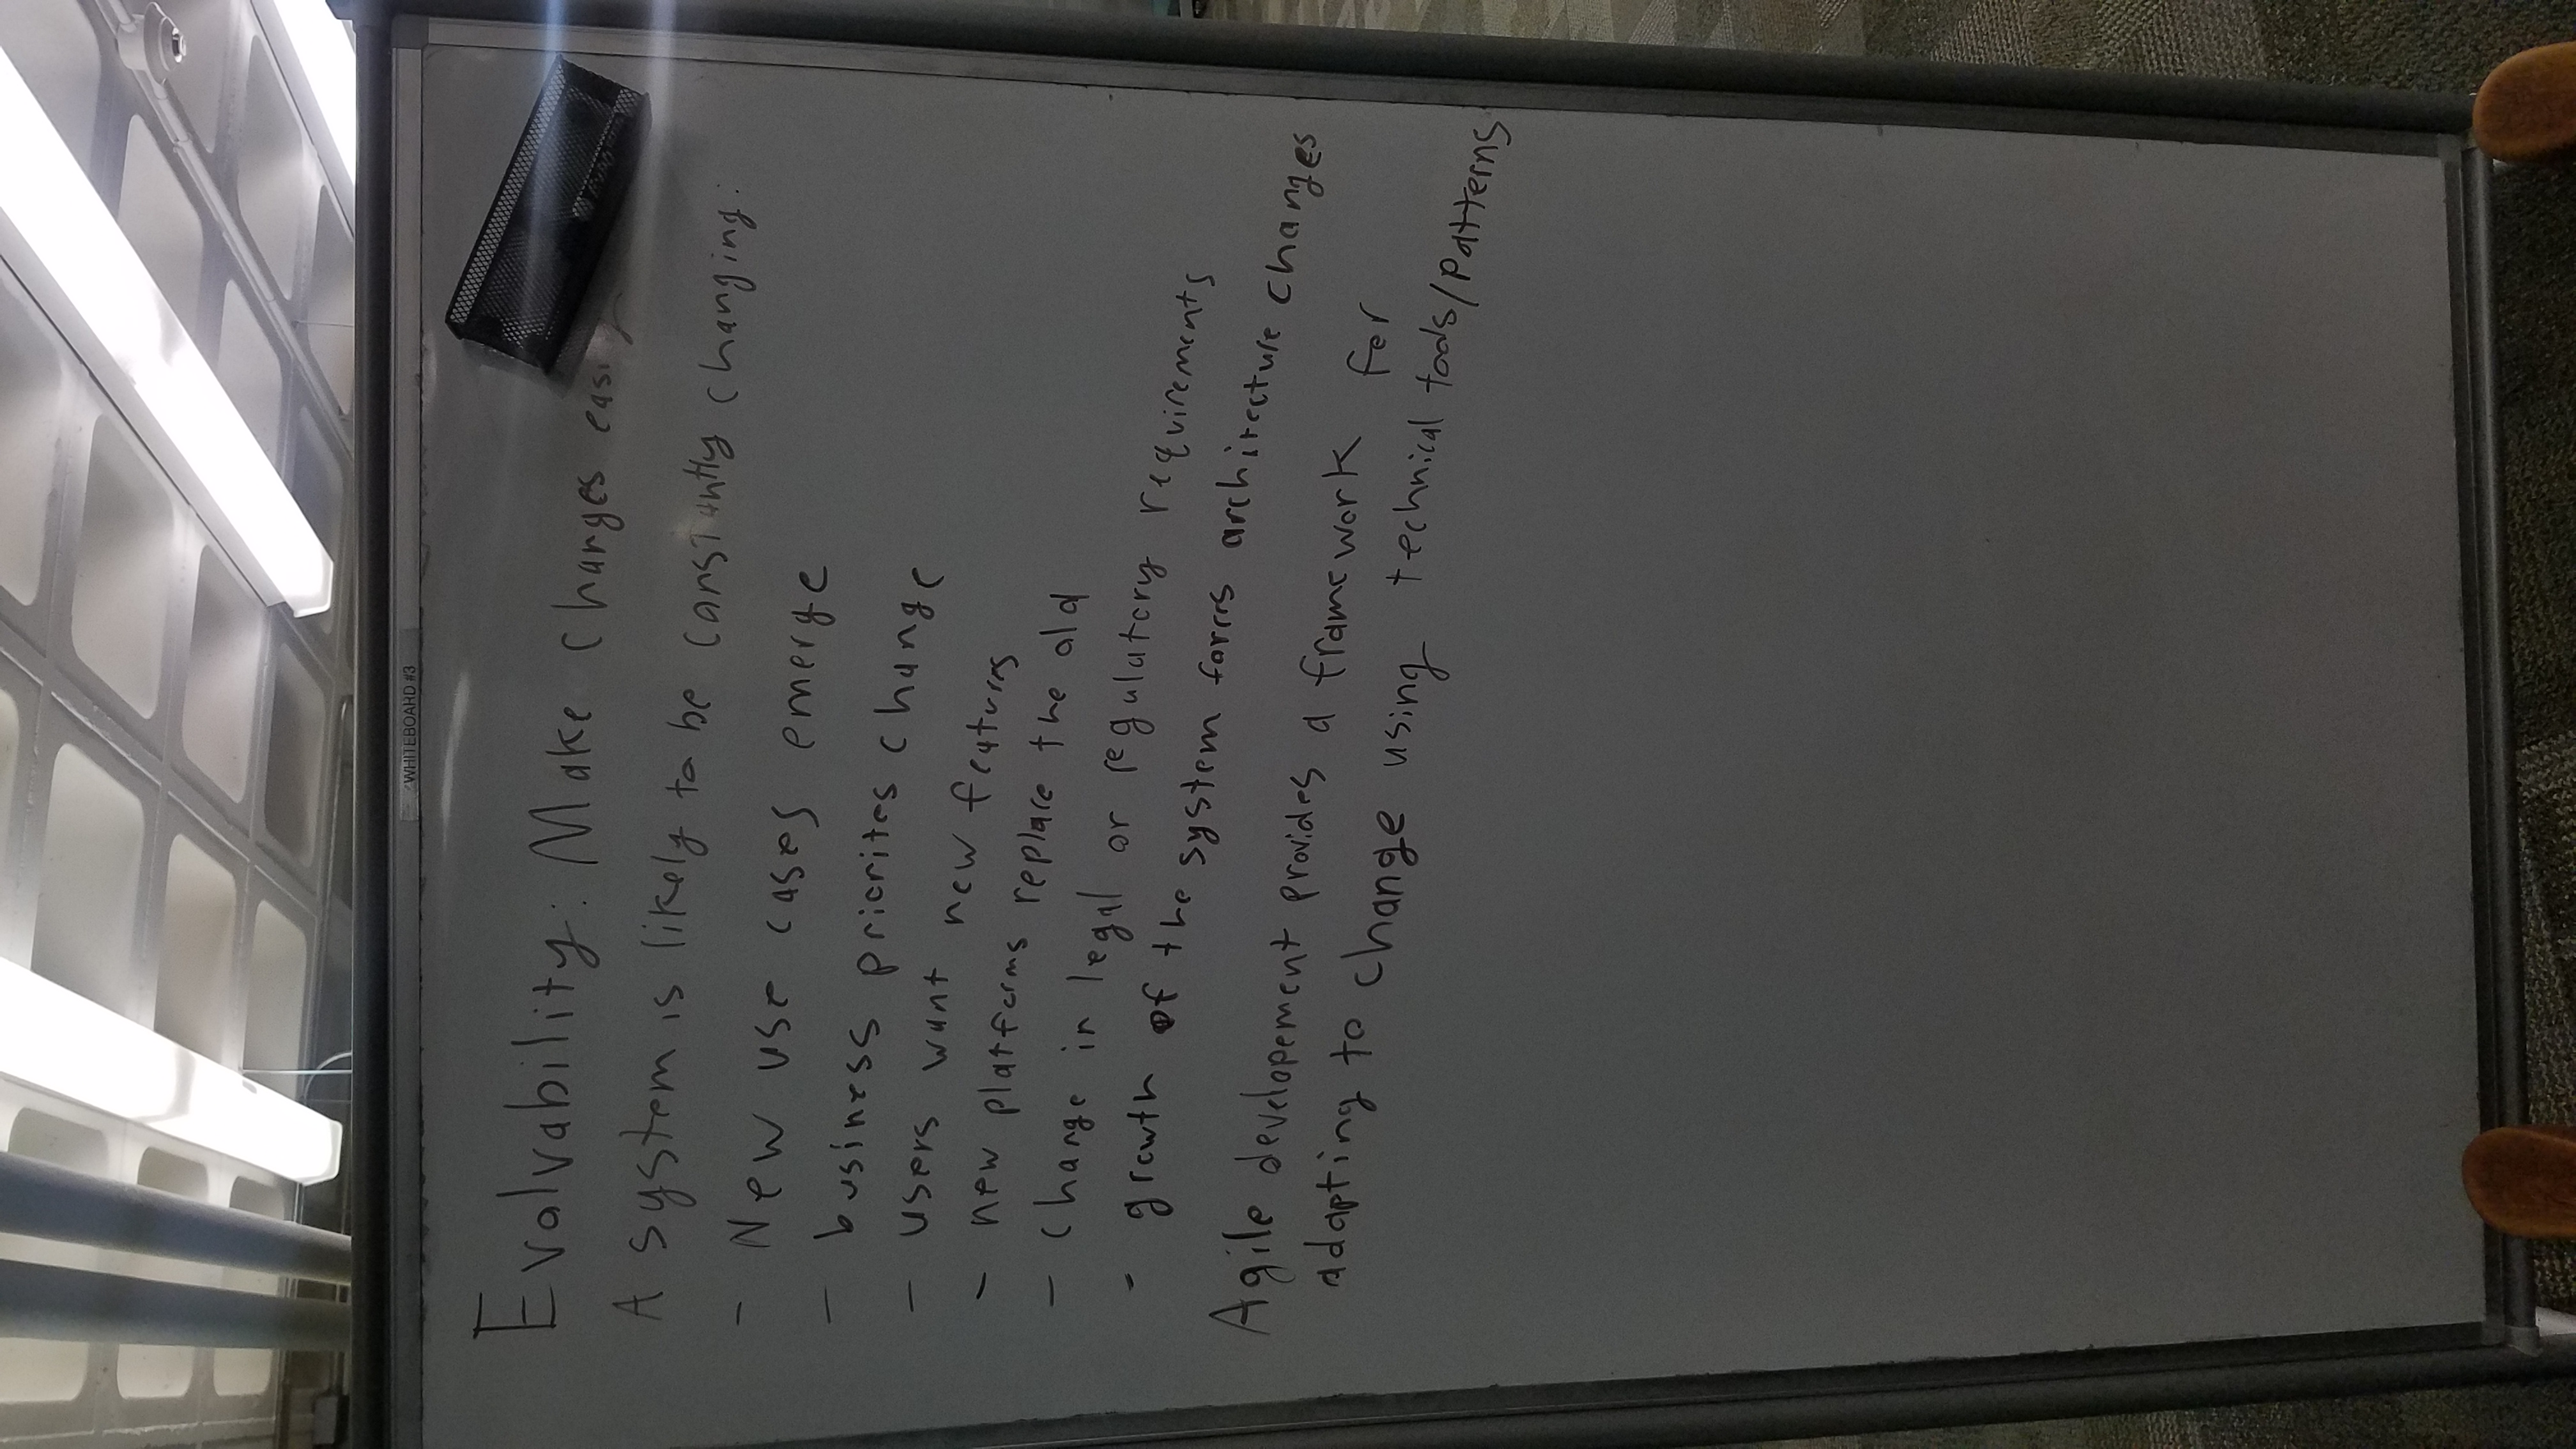 WHITEBOARD #3
Evolvability: Make changes easi
A system is likely to be constantly changing:
- New use cases emerge
- business priorites change
- users want new features
- new platforms replace the old
- change in legal or regulatory requirements
- growth of the system forces architecture changes
Agile developement provides a framework for
adapting to change using technical tools/patterns